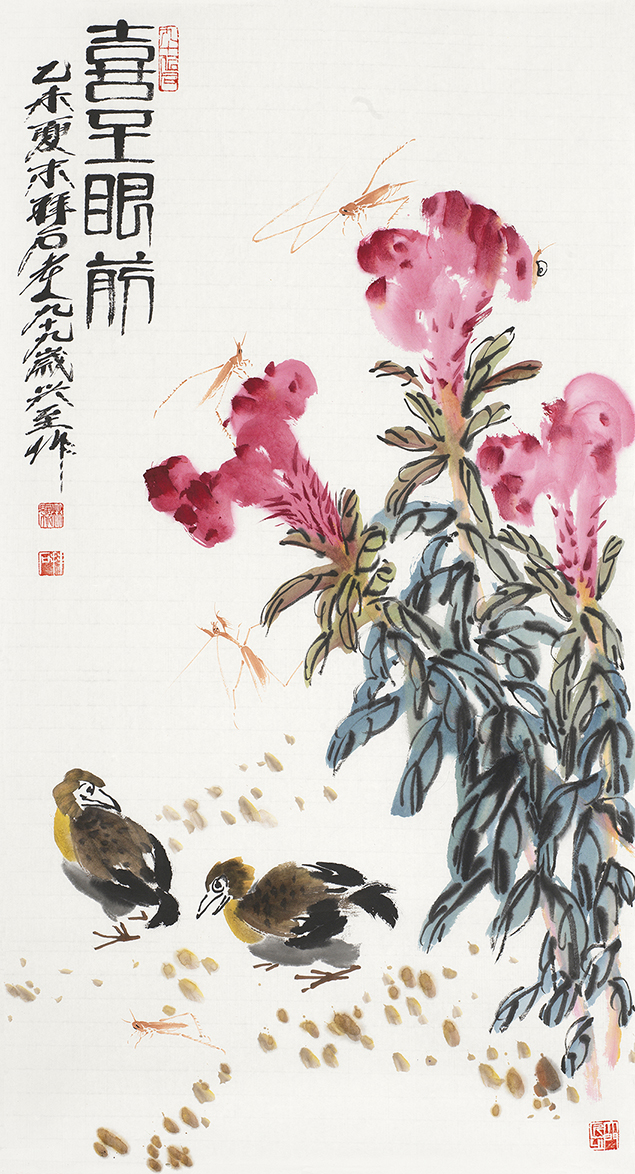 喜至眼前
乙未夏末拜石老人九十九歲兴至作